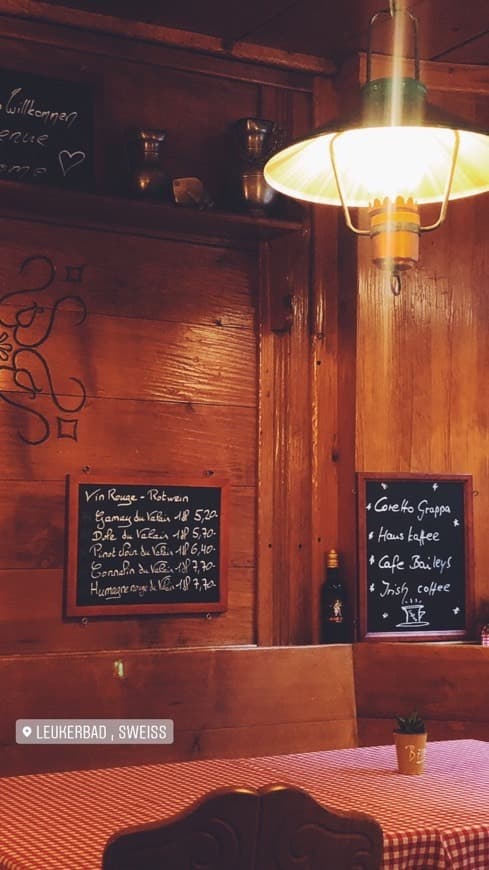 Willkommen
Vin Rouge - Rotwein
Gamay du Valais 1dl 5,20.-
Dôle du Valais 1dl 5,70.-
Pinot Noir du Valais 1dl 6,40.-
Cornalin du Valais 1dl 7,70.-
Humagne rouge du Valais 1dl 7,70.-
Coretto Grappa
Haus kaffee
Cafe Baileys
Irish coffee
LEUKERBAD , SWEISS